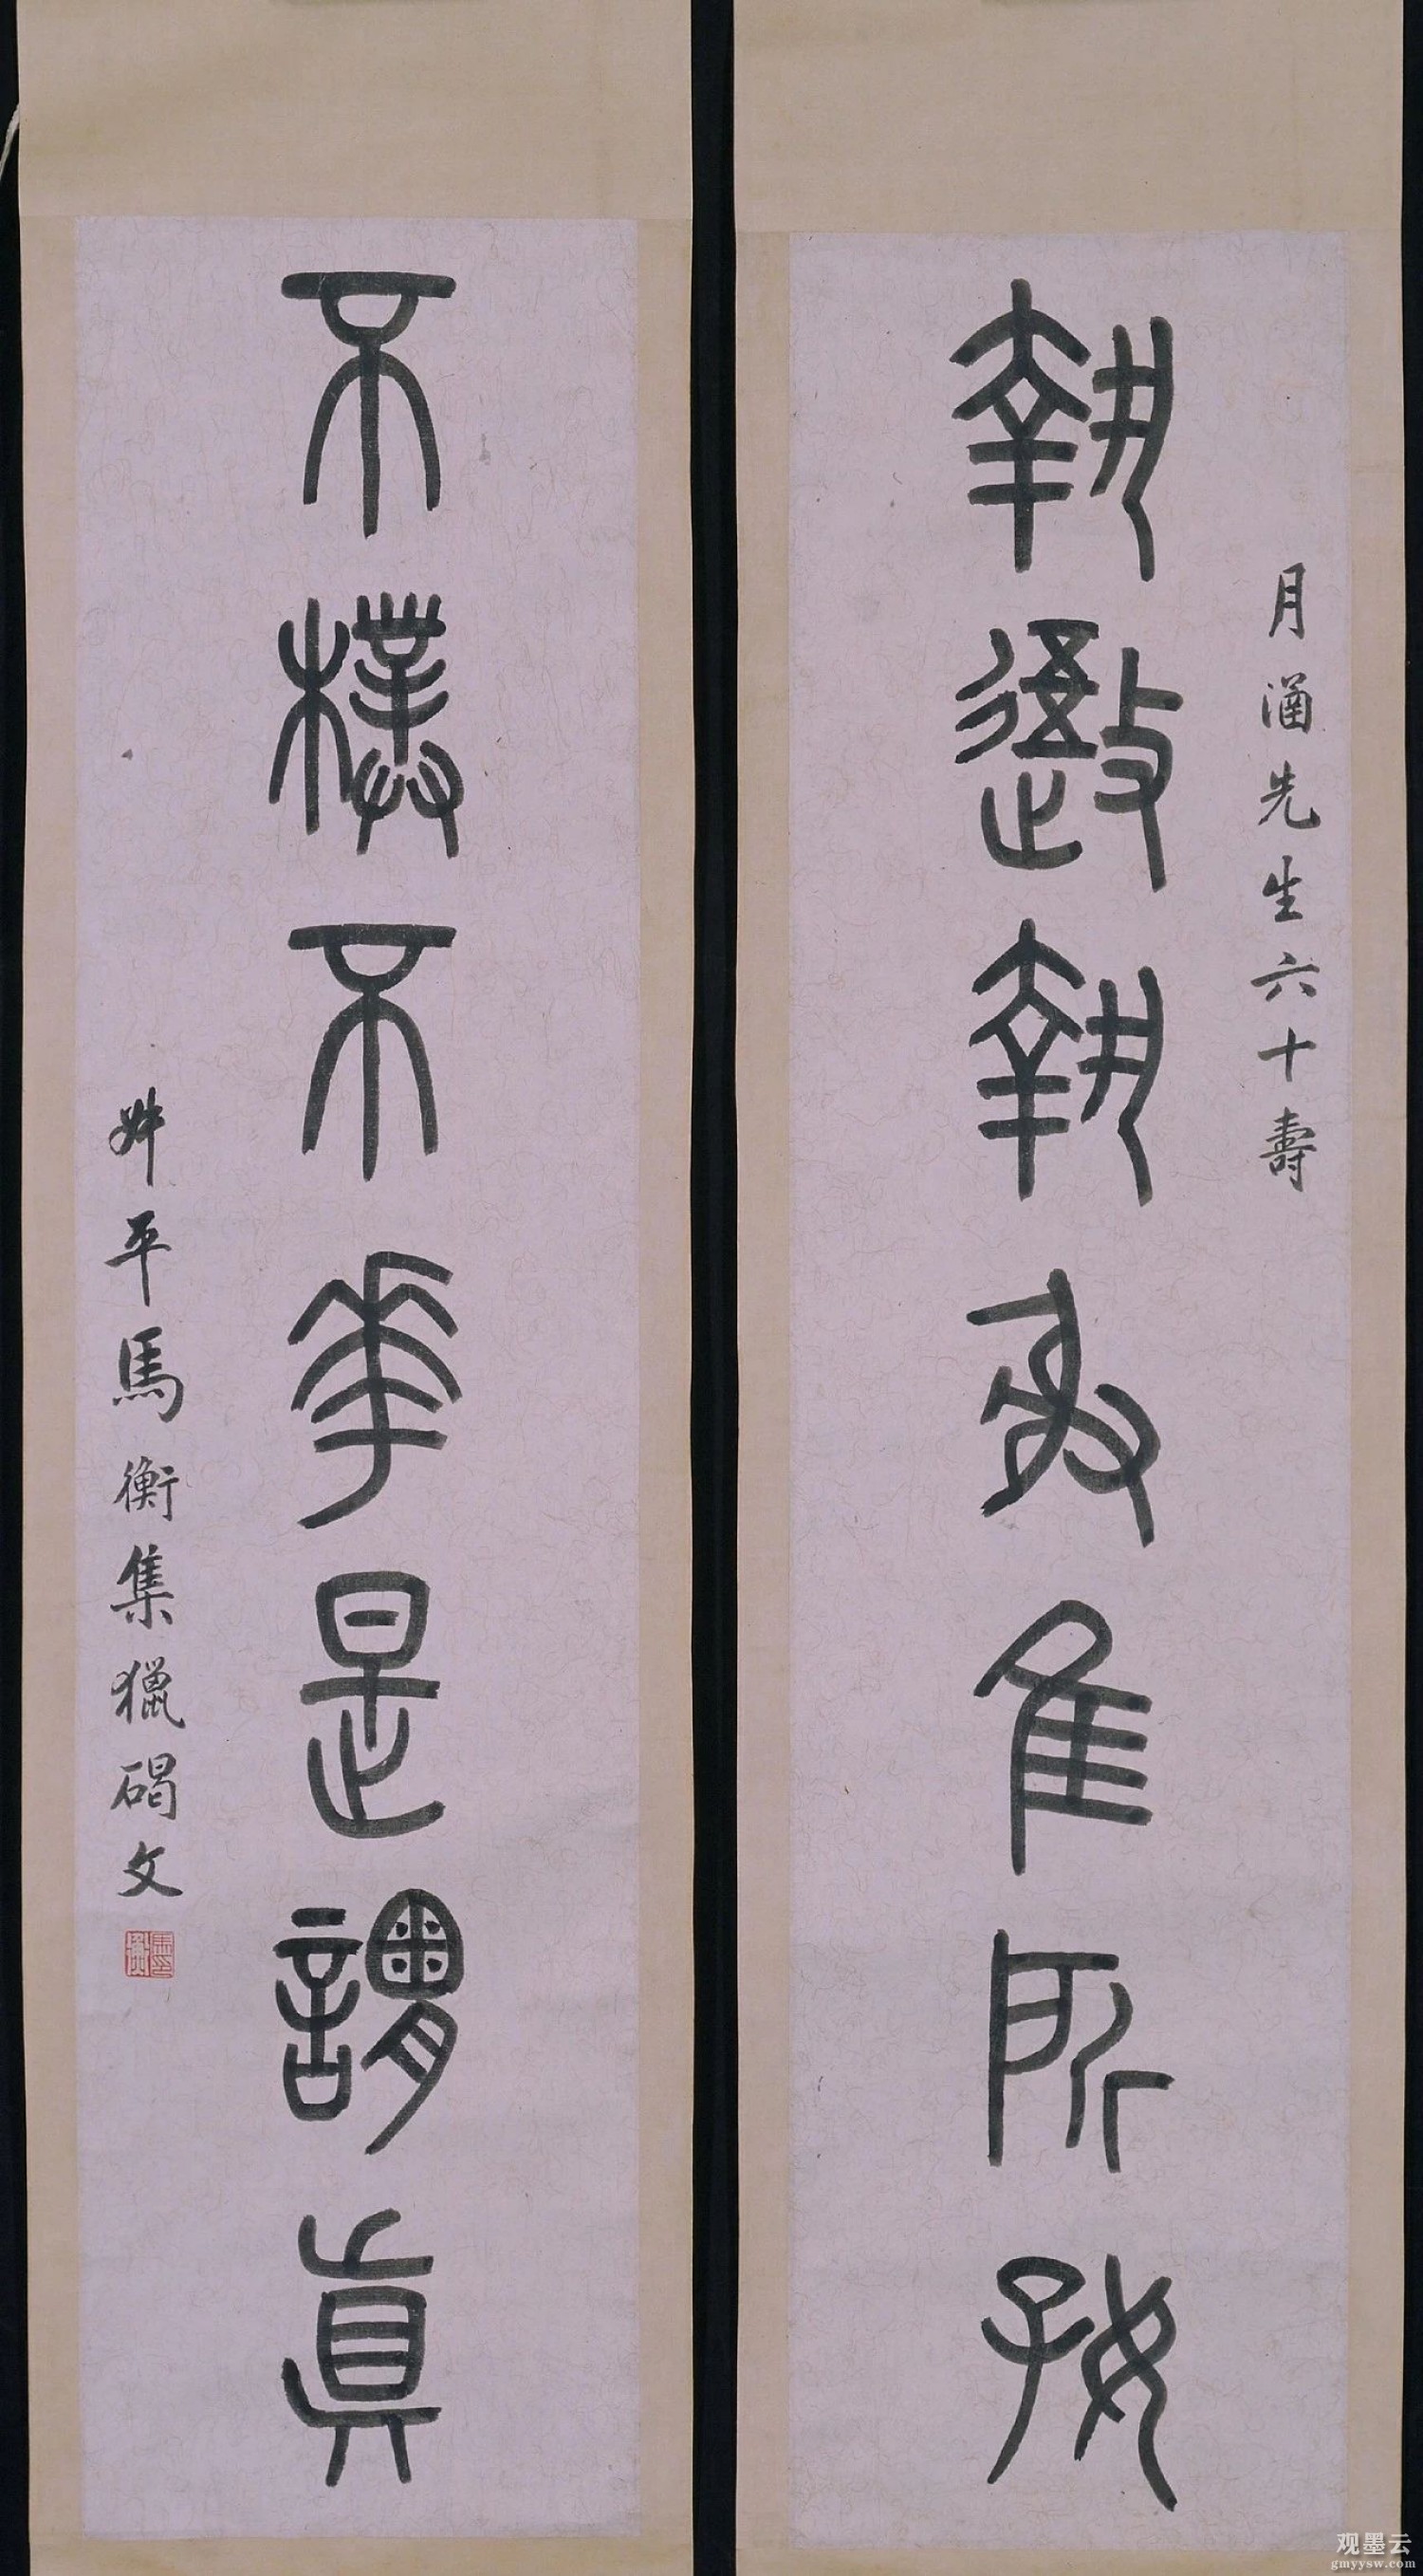 月涵先生六十壽
執御執射隹所好
不樸不華是謂眞
叔平馬衡集獵碣文
观墨云
gmyysw.com